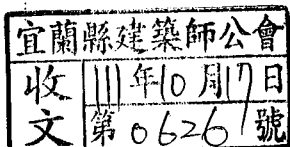 宜蘭縣建築師公會
收文
111年10月17日
第0626號